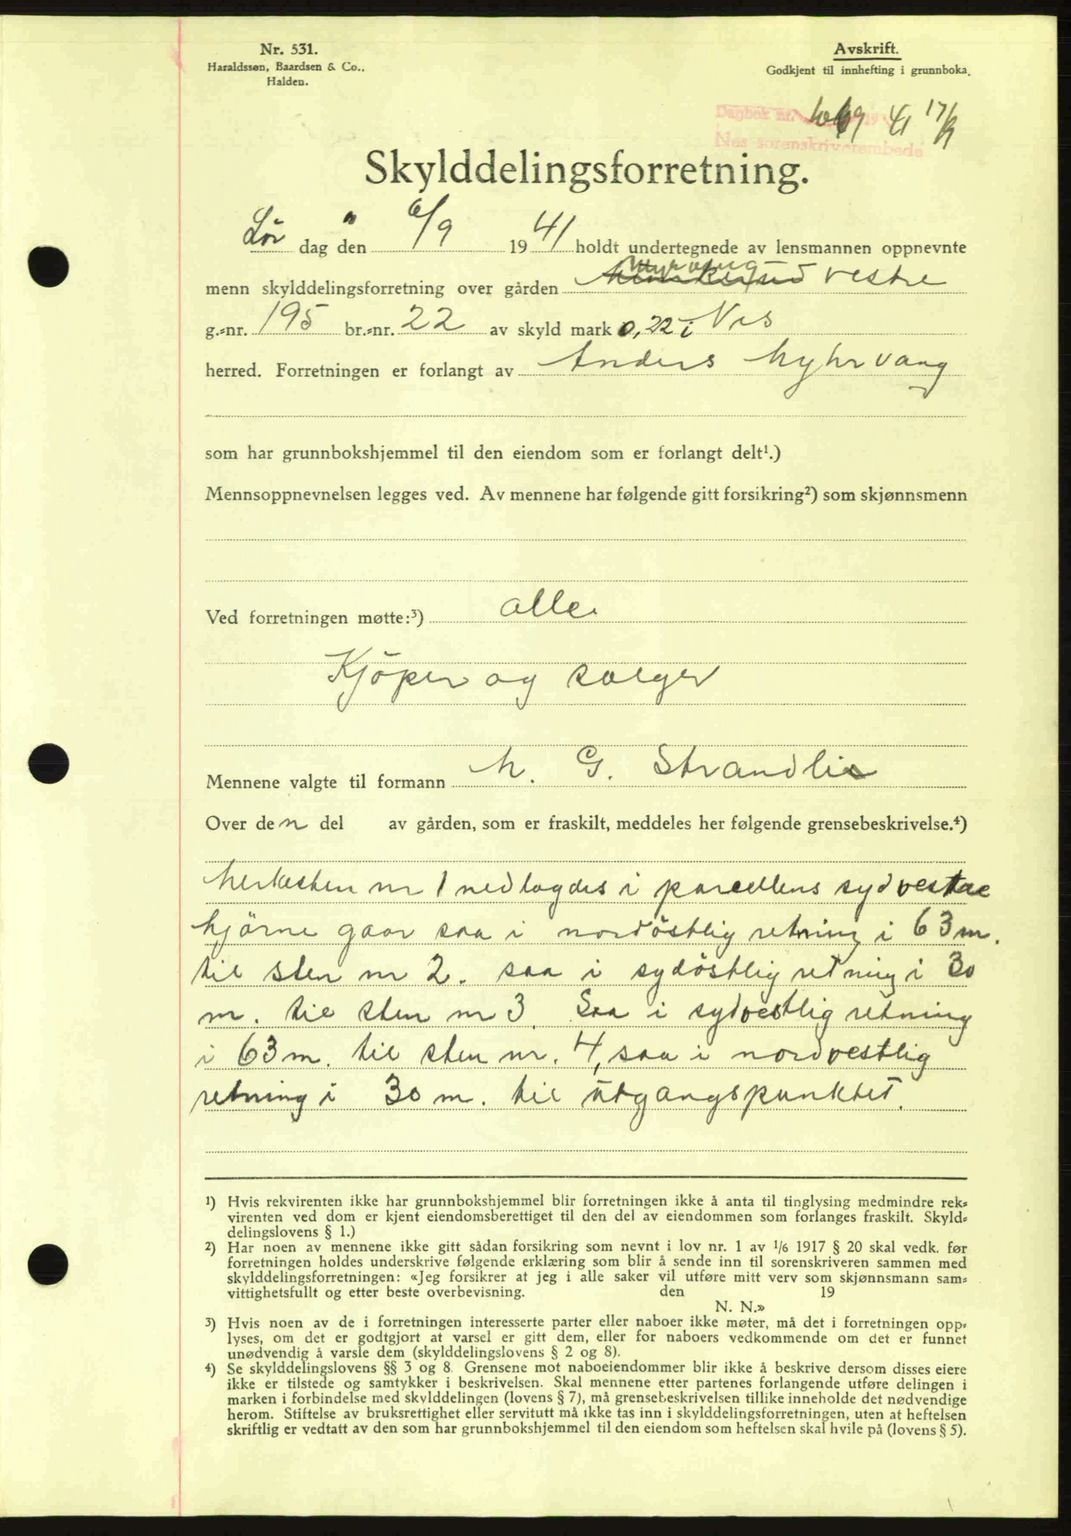 Nr. 531.
Haraldssøn, Baardsen & Co..
Halden.
Avskrift.
Godkjent til innhefting i grunnboka.
Dagbok nr. 41 17/9
Nes sorenskriverembede
Skylddelingsforretning.
Lör dag den 6/9 1941 holdt undertegnede av lensmannen oppnevnte
menn skylddelingsforretning over gården Myhrvang vestre
g.=nr. 195 br.=nr. 22 av skyld mark 0,22 i Nes
herred. Forretningen er forlangt av Anders Myhrvang
som har grunnbokshjemmel til den eiendom som er forlangt delt¹.)
Mennsoppnevnelsen legges ved. Av mennene har følgende gitt forsikring²) som skjønnsmenn
Ved forretningen møtte:³) alle.
Kjöper og sælger
Mennene valgte til formann M. G. Strandlie
Over den del av gården, som er fraskilt, meddeles her følgende grensebeskrivelse.⁴)
Merkesten nr 1 nedlagdes i parcellens sydvestre
hjörne gaar saa i nordöstlig retning i 63 m.
til sten nr 2. saa i sydöstlig retning i 30
m. til sten nr 3. Saa i sydvestlig retning
i 63 m. til sten nr. 4, saa i nordvestlig
retning i 30 m. til utgangspunktet.
¹) Hvis rekvirenten ikke har grunnbokshjemmel blir forretningen ikke å anta til tinglysing medmindre rek=
virenten ved dom er kjent eiendomsberettiget til den del av eiendommen som forlanges fraskilt. Skyld=
delingslovens § 1.)
²) Har noen av mennene ikke gitt sådan forsikring som nevnt i lov nr. 1 av 1/6 1917 § 20 skal vedk. før
forretningen holdes underskrive følgende erklæring som blir å sende inn til sorenskriveren sammen med
skylddelingsforretningen: «Jeg forsikrer at jeg i alle saker vil utføre mitt verv som skjønnsmann sam=
vittighetsfullt og etter beste overbevisning. den 19
N. N.»
³) Hvis noen av de i forretningen interesserte parter eller naboer ikke møter, må det i forretningen opp=
lyses, om det er godtgjort at varsel er gitt dem, eller for naboers vedkommende om det er funnet
unødvendig å varsle dem (skylddelingslovens § 2 og 8).
⁴) Se skylddelingslovens §§ 3 og 8. Grensene mot naboeiendommer blir ikke å beskrive dersom disses eiere
ikke er tilstede og samtykker i beskrivelsen. Skal mennene etter partenes forlangende utføre delingen i
marken i forbindelse med skylddelingen (lovens § 7), må grensebeskrivelsen tillike inneholde det nødvendige
herom. Stiftelse av bruksrettighet eller servitutt må ikke tas inn i skylddelingsforretningen, uten at heftelsen
skriftlig er vedtatt av den som har grunnbokshjemmel til den eiendom som heftelsen skal hvile på (lovens § 5).